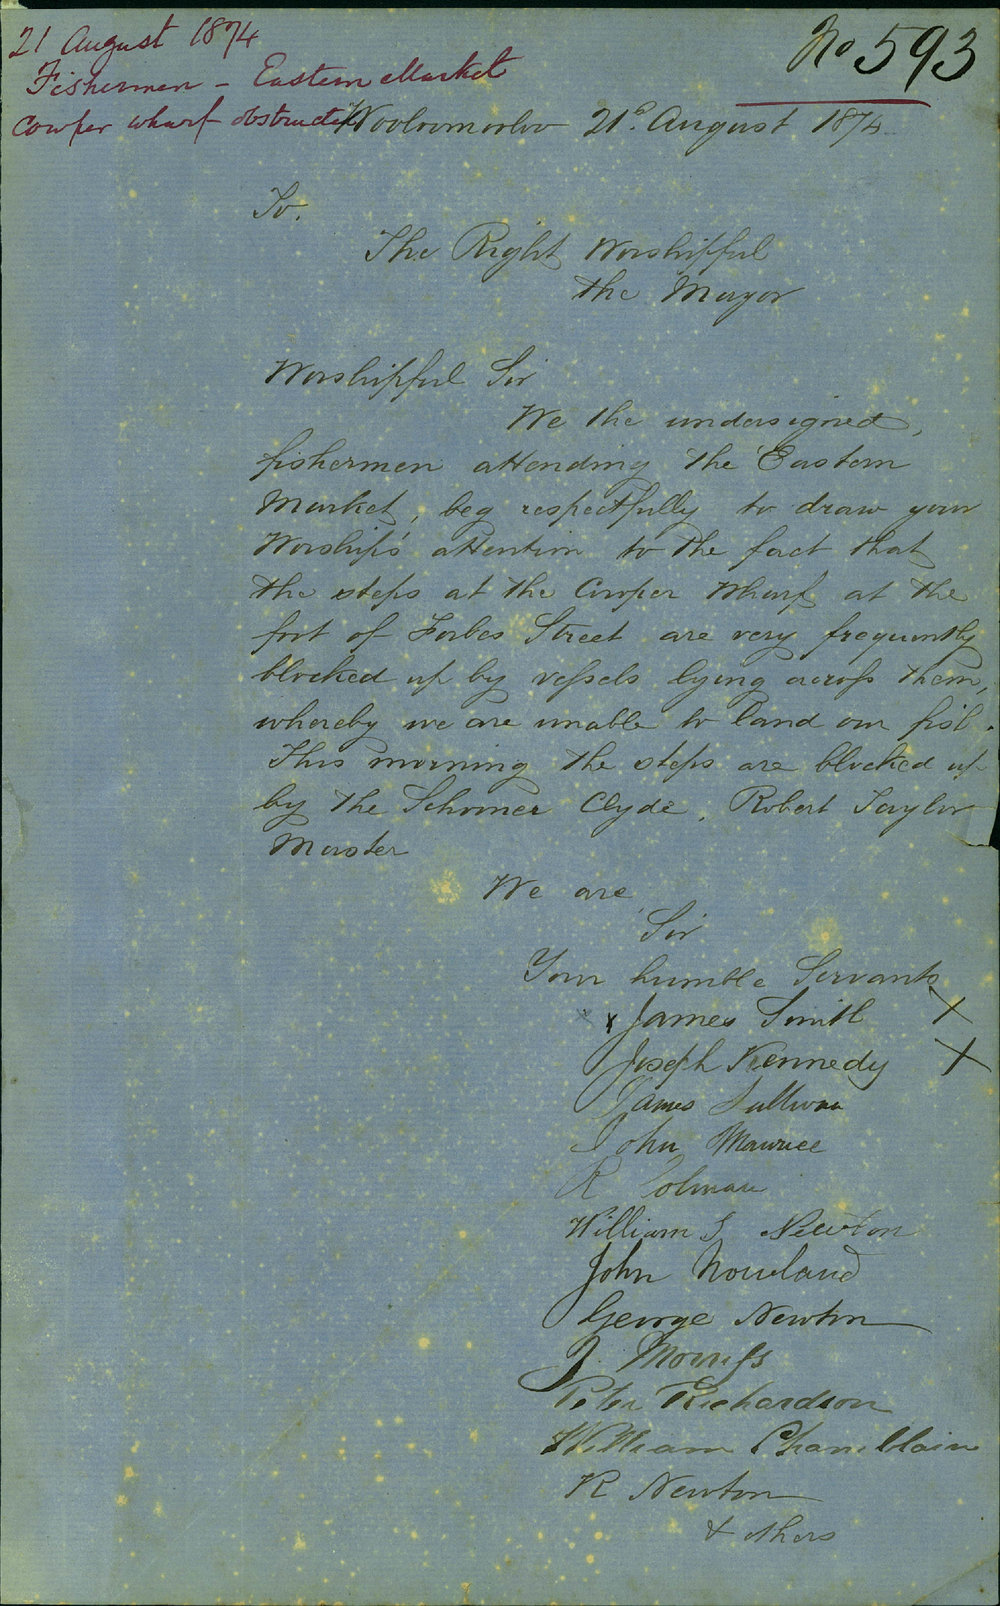 21 August 1874
Fishermen - Eastern Market
Cowper wharf obstructed
No 593
Wooloomooloo 21st August 1874
To.
The Right Worshipful
the Mayor
Worshipful Sir
We the undersigned,
fishermen attending the Eastern
Market, beg respectfully to draw your
Worship's attention to the fact that
the steps at the Cowper Wharf at the
foot of Forbes Street are very frequently
blocked up by vessels lying across them,
whereby we are unable to land our fish.
This morning the steps are blocked up
by the Schooner Clyde, Robert Taylor
Master
We are
Sir
Your humble Servants
x James Smith X
Joseph Kennedy X
James Sullivan
John Maurice
R Colman
William J Newton
John Nowland
George Newton
J. Morriss
Peter Richardson
William Chamblain
R Newton
& others